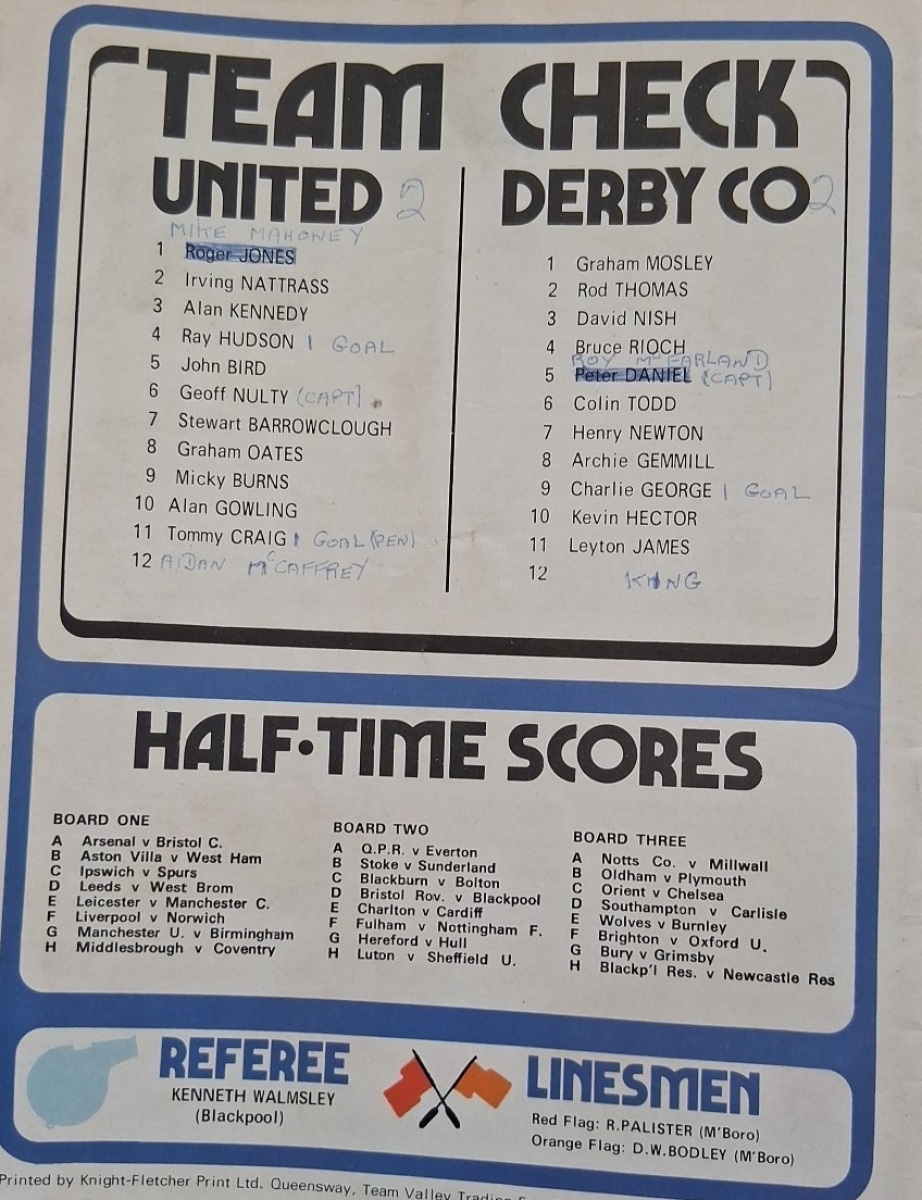 TEAM CHECK
UNITED 2
MIKE MAHONEY
1 Roger JONES
2 Irving NATTRASS
3 Alan KENNEDY
4 Ray HUDSON 1 GOAL
5 John BIRD
6 Geoff NULTY (CAPT)
7 Stewart BARROWCLOUGH
8 Graham OATES
9 Micky BURNS
10 Alan GOWLING
11 Tommy CRAIG 1 GOAL (PEN)
12 AIDAN McCAFFREY
DERBY CO 2
1 Graham MOSLEY
2 Rod THOMAS
3 David NISH
4 Bruce RIOCH
ROY McFARLAND
5 Peter DANIEL (CAPT)
6 Colin TODD
7 Henry NEWTON
8 Archie GEMMILL
9 Charlie GEORGE 1 GOAL
10 Kevin HECTOR
11 Leyton JAMES
12 KING
HALF·TIME SCORES
BOARD ONE
A Arsenal v Bristol C.
B Aston Villa v West Ham
C Ipswich v Spurs
D Leeds v West Brom
E Leicester v Manchester C.
F Liverpool v Norwich
G Manchester U. v Birmingham
H Middlesbrough v Coventry
BOARD TWO
A Q.P.R. v Everton
B Stoke v Sunderland
C Blackburn v Bolton
D Bristol Rov. v Blackpool
E Charlton v Cardiff
F Fulham v Nottingham F.
G Hereford v Hull
H Luton v Sheffield U.
BOARD THREE
A Notts Co. v Millwall
B Oldham v Plymouth
C Orient v Chelsea
D Southampton v Carlisle
E Wolves v Burnley
F Brighton v Oxford U.
G Bury v Grimsby
H Blackp'l Res. v Newcastle Res
REFEREE
KENNETH WALMSLEY
(Blackpool)
LINESMEN
Red Flag: R.PALISTER (M'Boro)
Orange Flag: D.W.BODLEY (M'Boro)
Printed by Knight-Fletcher Print Ltd. Queensway, Team Valley Trading